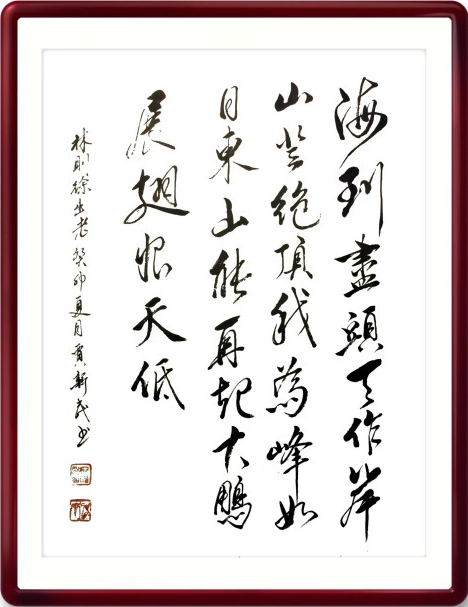 海到盡頭天作岸
山登絶頂我為峰如
日東山能再起大鵬
展翅恨天低
林则徐出老癸卯夏月贾新民书